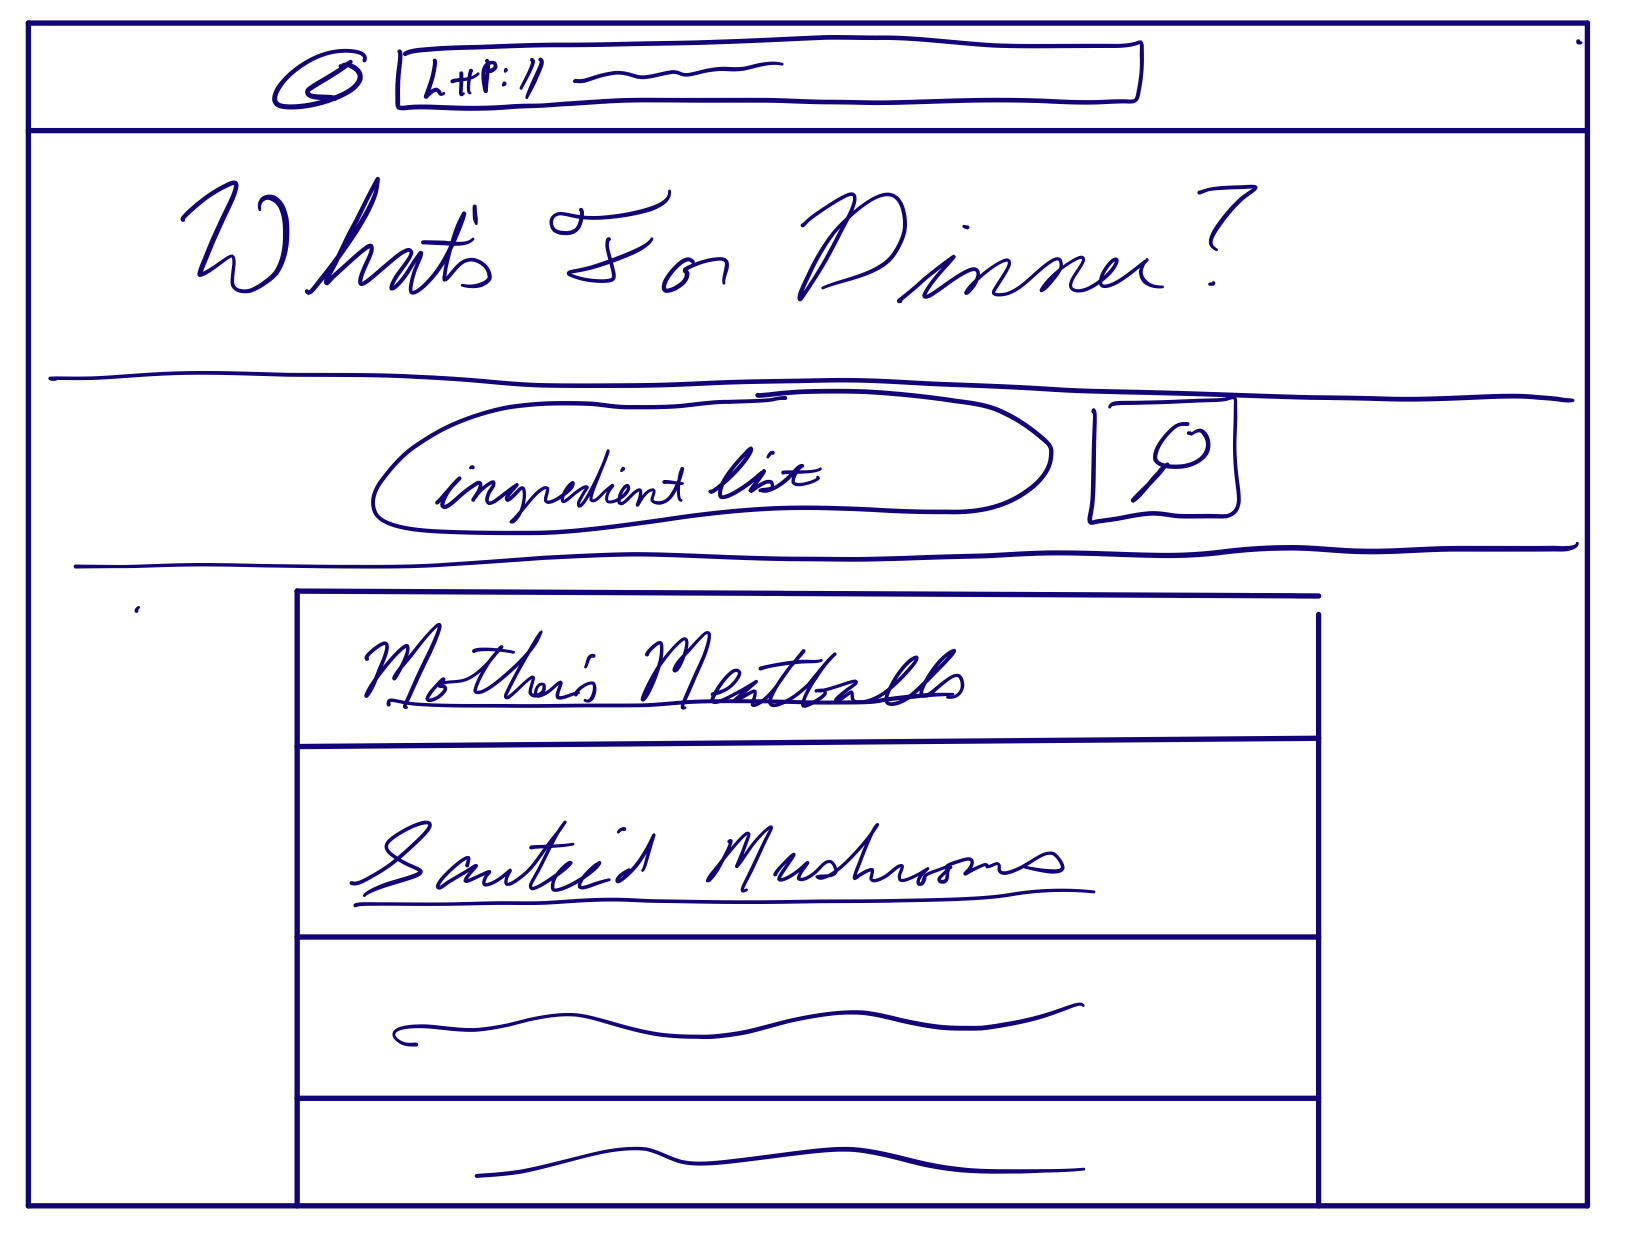 http://
What's For Dinner?
ingredient list
Mother's Meatballs
Sauteé'd Mushrooms